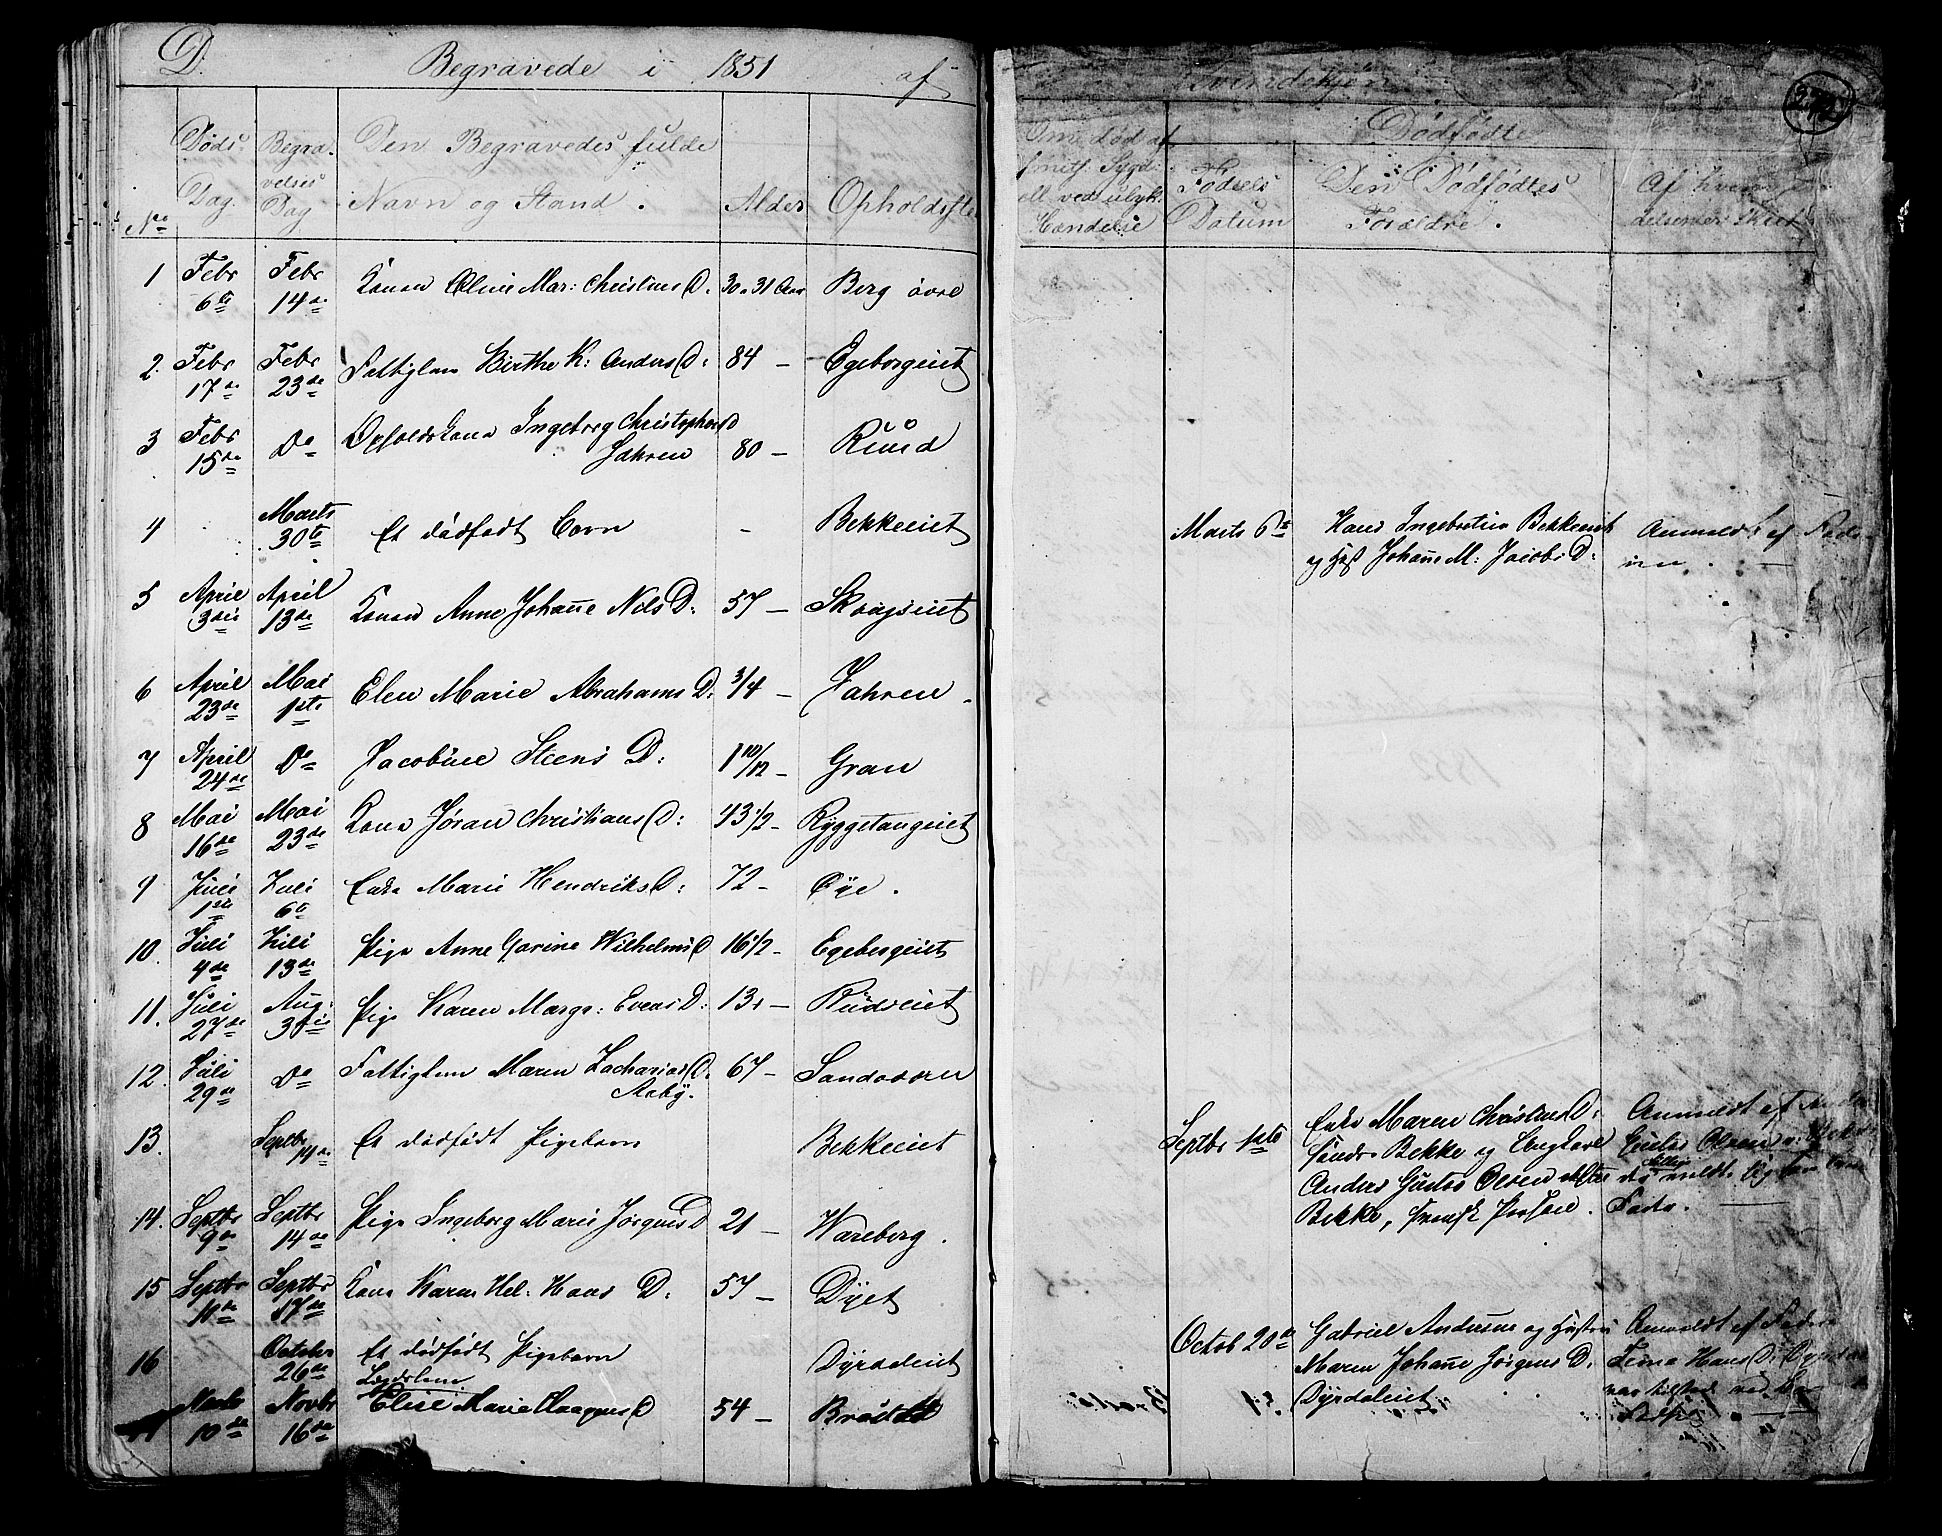 D. Begravede i 1851 af Kvindekjön
272
No Döds Dag. Begravelses Dag Den Begravedes fulde Navn og Stand. Alder Opholdsste
Om död af smits. Sygd. ell. ved ulyk. Hændelse
Dödfödte
Födsels Datum Den Dödfödtes Forældre. Af hvem
1 Febr 6te Febr 14de Konen Oline Mar: Christens D. 30 a 31 Aar Berg övre
2. Febr 17de Febr 23de Fattiglem Birthe K: Anders D: 84 - Egeborgeiet
3 Febr 15de Do Opholdskone Ingeborg Christophers D
Jahren 80 - Ruud
4 Marts 30te Et dödfödt Barn - Bekkeeiet Marts 6te Hans Ingebretsen Bekkeeiet
og Hst Johanne M: Jacobs D: Anmeldt af Faderen.
5 April 3die April 13de Konen Anne Johanne Nels D: 57 - Skougseiet
6 April 23de Mai 1ste Elen Marie Abrahams D: 3/4 - Jahren
7 April 24de Do Jacobine Steens D: 1 10/12 - Gran
8 Mai 16de Mai 23de Kone Jöran Christians D: 43 1/2 - Ryggetangeiet
9 Juli 1ste Juli 6te Enke Marie Hendriks D: 72 - Öye.
10. Juli 4de Juli 13de Pige Anne Garine Wilhelms D 16 1/2 - Egebergeiet
11. Juli 27de Aug: 3die Pige Karen Margr: Evens D: 13 - Rudseiet
12. Juli 29de Do Fattiglem Maren Zacharias D.
Aaby. 67 - Sandaasen
13. Septbr 14de Et dödfödt Pigebarn Bekkeeiet Septbr 1ste Enke Maren Christens D:
Söndr Bekke og Ungkarl
Anders Gustav Olsen
Bekke, svensk Person. Anmeldt af
Fader.
14. Septbr 9de Septbr 14de Pige Ingeborg Marie Jörgens D 21 - Wareberg.
15 Septbr 10de Septbr 17de Kone Karen Hel. Hans D. 57 - Dyet
16 October 26de Et dödfödt Pigebarn Dyrdaleiet Octob 20de Gabriel Andersen og Hustru
Maren Johanne Jörgens D.
Dyrdaleiet Anmeldt af Faderen
var tilstede ved
Lægdslem
10de Novbr 16de Elise Marie Haagens D 54 -